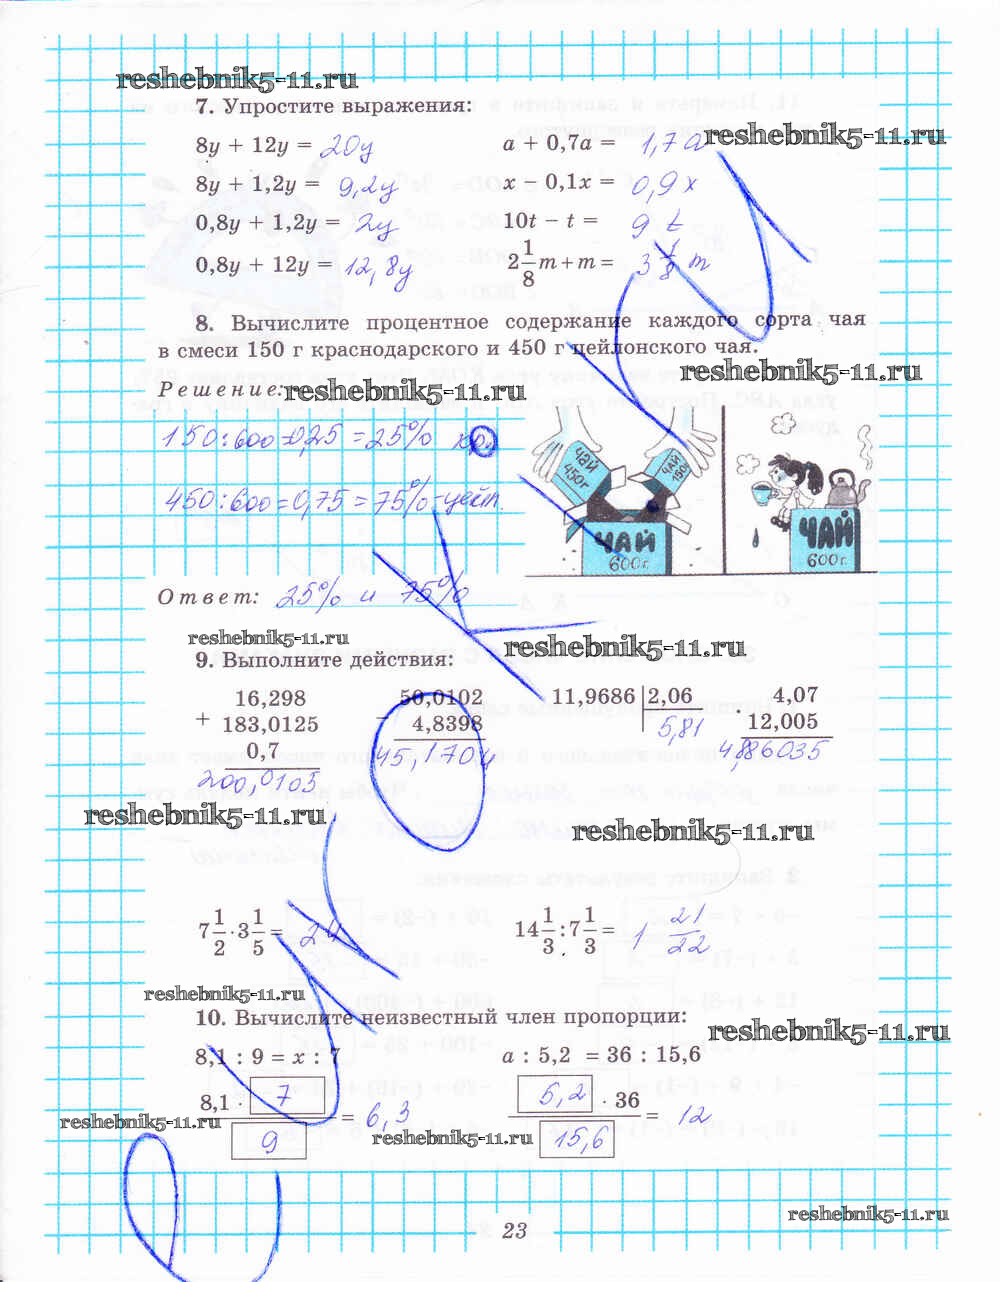 reshebnik5-11.ru
7. Упростите выражения:
reshebnik5-11.ru
8y + 12y = 20y
a + 0,7a = 1,7a
8y + 1,2y = 9,2y
x − 0,1x = 0,9x
0,8y + 1,2y = 2y
10t − t = 9 t
0,8y + 12y = 12,8y
2 1/8 m + m = 3 1/8 m
8. Вычислите процентное содержание каждого сорта чая
в смеси 150 г краснодарского и 450 г цейлонского чая.
reshebnik5-11.ru
Решение:
reshebnik5-11.ru
150:600=0,25=25%
450:600=0,75=75%-цейл.
ЧАЙ
450г
ЧАЙ
150г
ЧАЙ
600г.
ЧАЙ
600г.
Ответ: 25% и 75%
reshebnik5-11.ru
reshebnik5-11.ru
9. Выполните действия:
16,298
+ 183,0125
0,7
200,0105
50,0102
− 4,8398
45,1704
11,9686 2,06
5,81
4,07
· 12,005
reshebnik5-11.ru
reshebnik5-11.ru
7 1/2 · 3 1/5 = 24
14 1/3 : 7 1/3 = 1 21/22
reshebnik5-11.ru
10. Вычислите неизвестный член пропорции:
reshebnik5-11.ru
8,1 : 9 = x : 7
a : 5,2 = 36 : 15,6
8,1 · 7
9
= 6,3
5,2 · 36
15,6
= 12
reshebnik5-11.ru
reshebnik5-11.ru
reshebnik5-11.ru
23